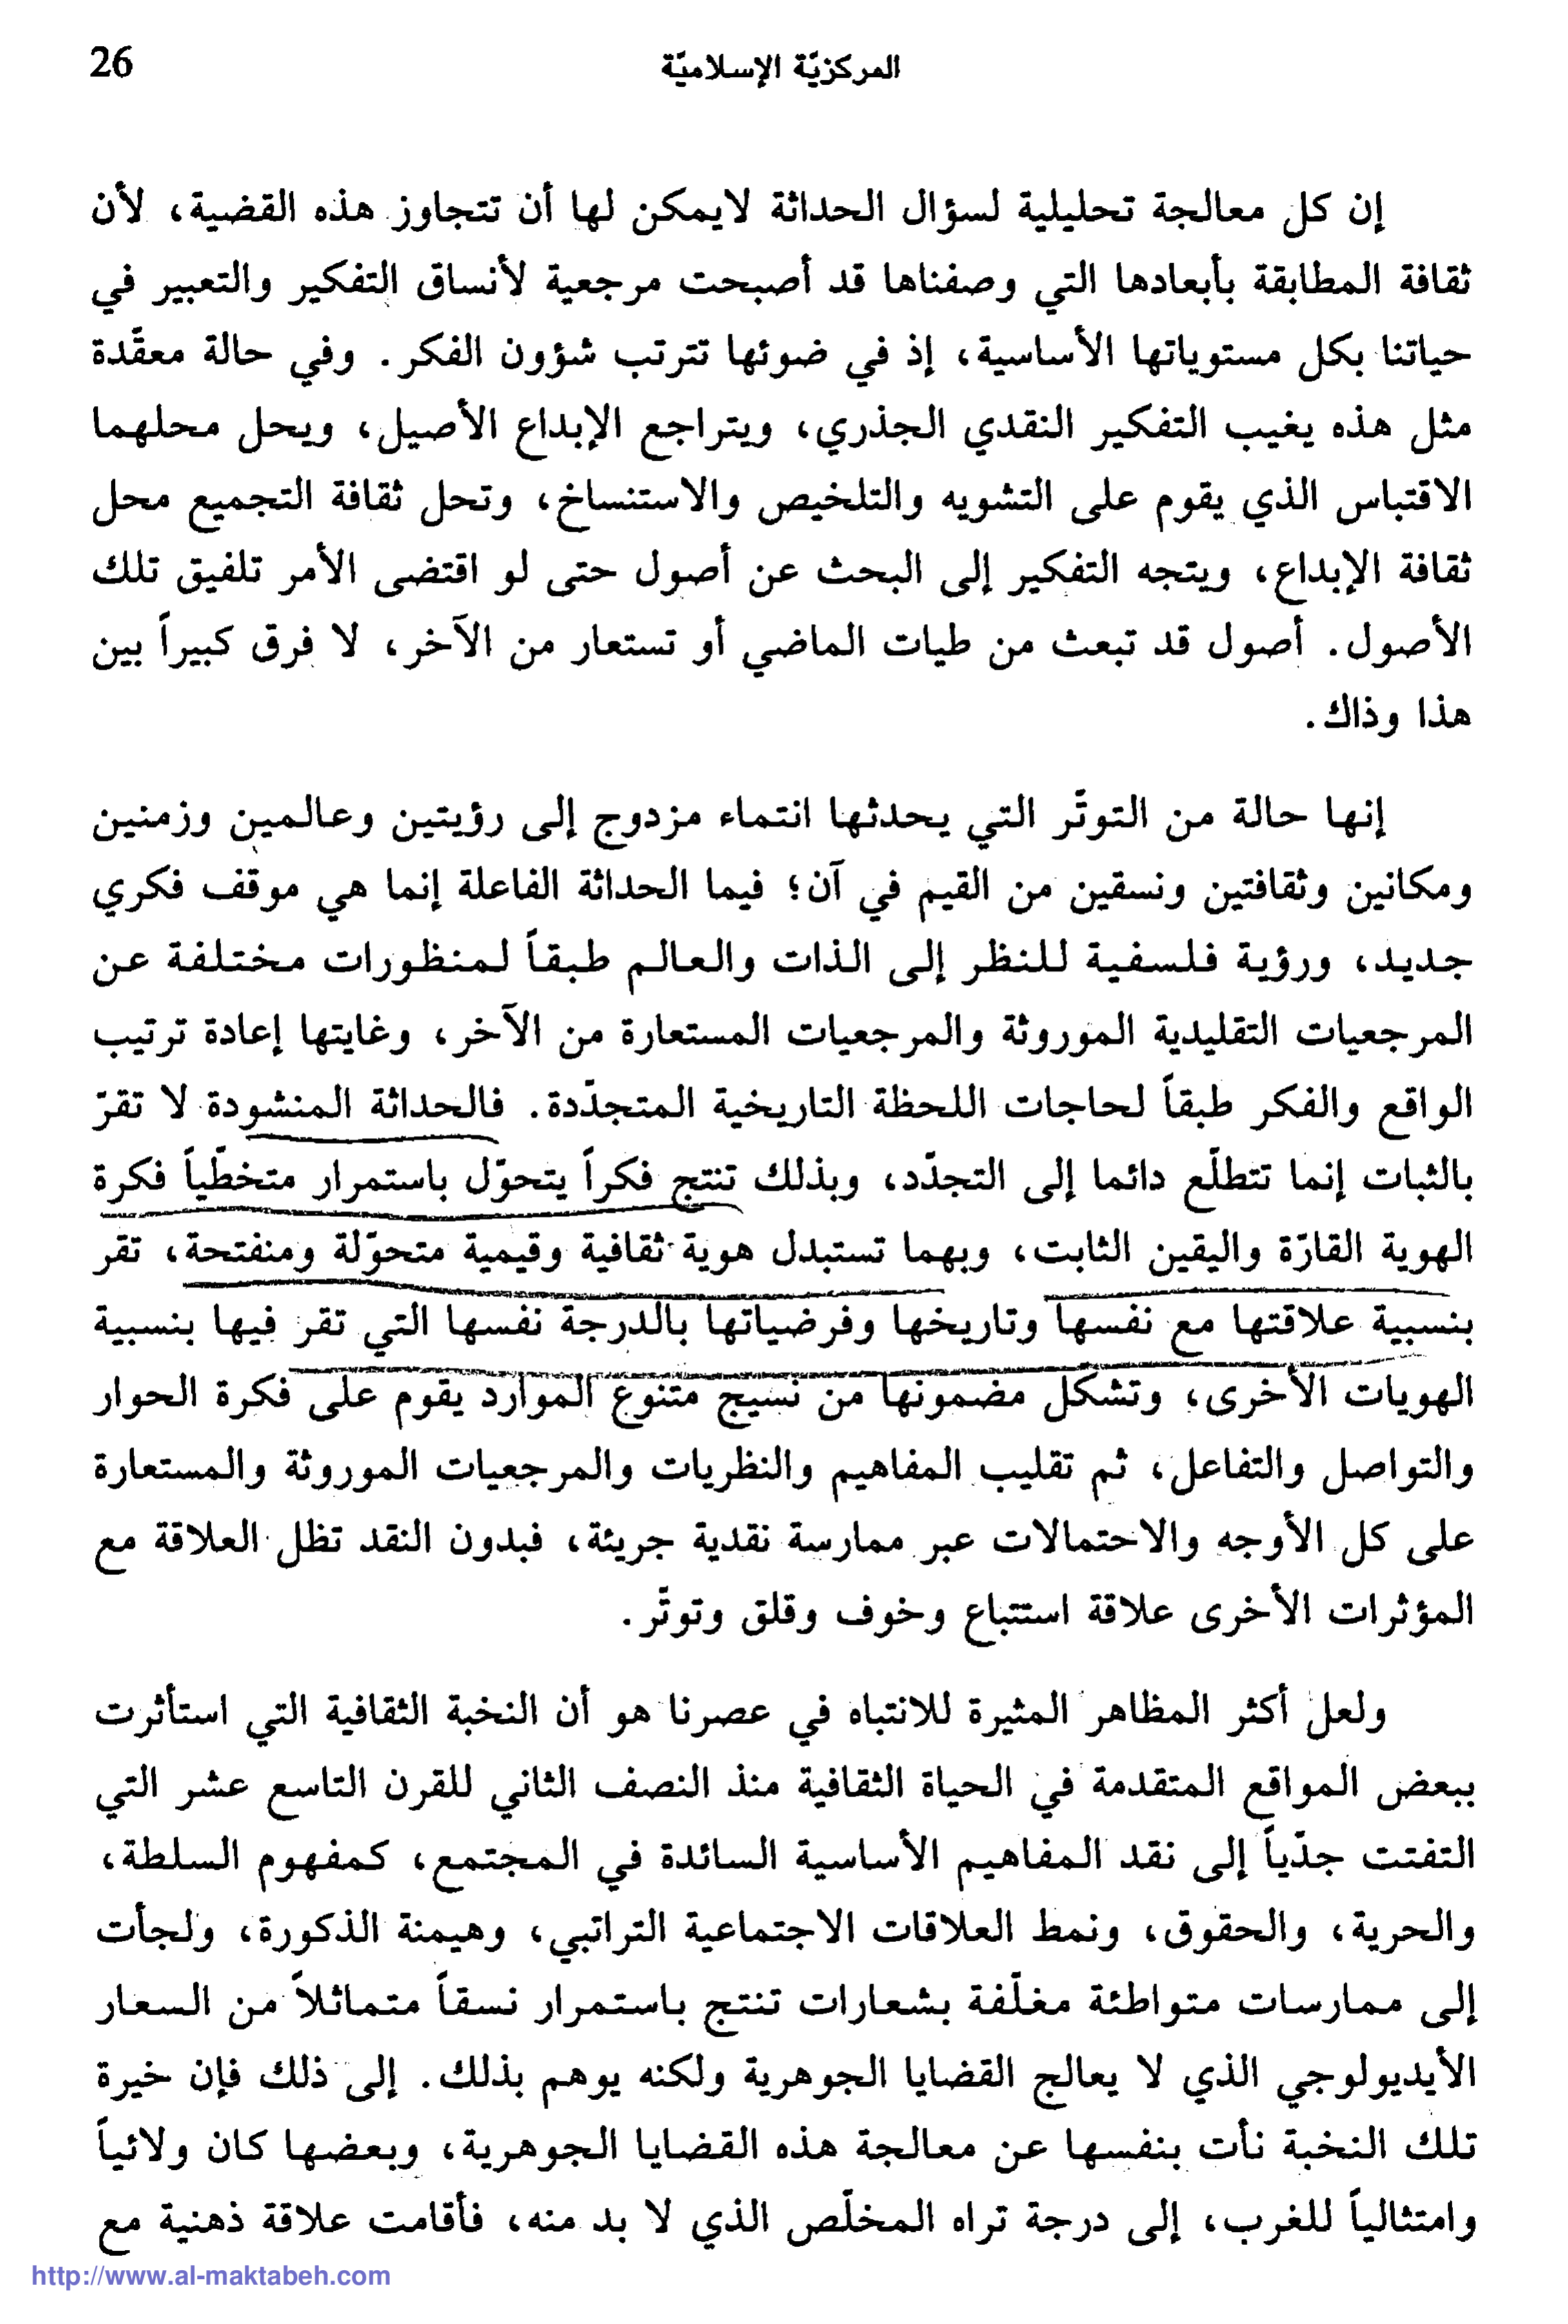 26
المركزيّة الإسلاميّة
إن كل معالجة تحليلية لسؤال الحداثة لايمكن لها أن تتجاوز هذه القضية، لأن
ثقافة المطابقة بأبعادها التي وصفناها قد أصبحت مرجعية لأنساق التفكير والتعبير في
حياتنا بكل مستوياتها الأساسية، إذ في ضوئها تترتب شؤون الفكر. وفي حالة معقّدة
مثل هذه يغيب التفكير النقدي الجذري، ويتراجع الإبداع الأصيل، ويحل محلهما
الاقتباس الذي يقوم على التشويه والتلخيص والاستنساخ، وتحل ثقافة التجميع محل
ثقافة الإبداع، ويتجه التفكير إلى البحث عن أصول حتى لو اقتضى الأمر تلفيق تلك
الأصول. أصول قد تبعث من طيات الماضي أو تستعار من الآخر، لا فرق كبيراً بين
هذا وذاك.
إنها حالة من التوتّر التي يحدثها انتماء مزدوج إلى رؤيتين وعالمين وزمنين
ومكانين وثقافتين ونسقين من القيم في آن؛ فيما الحداثة الفاعلة إنما هي موقف فكري
جديد، ورؤية فلسفية للنظر إلى الذات والعالم طبقاً لمنظورات مختلفة عن
المرجعيات التقليدية الموروثة والمرجعيات المستعارة من الآخر، وغايتها إعادة ترتيب
الواقع والفكر طبقاً لحاجات اللحظة التاريخية المتجدّدة. فالحداثة المنشودة لا تقرّ
بالثبات إنما تتطلّع دائما إلى التجدّد، وبذلك تنتج فكراً يتحوّل باستمرار متخطّياً فكرة
الهوية القارّة واليقين الثابت، وبهما تستبدل هوية ثقافية وقيمية متحوّلة ومنفتحة، تقر
بنسبية علاقتها مع نفسها وتاريخها وفرضياتها بالدرجة نفسها التي تقر فيها بنسبية
الهويات الأخرى، وتشكل مضمونها من نسيج متنوع الموارد يقوم على فكرة الحوار
والتواصل والتفاعل، ثم تقليب المفاهيم والنظريات والمرجعيات الموروثة والمستعارة
على كل الأوجه والاحتمالات عبر ممارسة نقدية جريئة، فبدون النقد تظل العلاقة مع
المؤثرات الأخرى علاقة استتباع وخوف وقلق وتوتّر.
ولعل أكثر المظاهر المثيرة للانتباه في عصرنا هو أن النخبة الثقافية التي استأثرت
ببعض المواقع المتقدمة في الحياة الثقافية منذ النصف الثاني للقرن التاسع عشر التي
التفتت جدّياً إلى نقد المفاهيم الأساسية السائدة في المجتمع، كمفهوم السلطة،
والحرية، والحقوق، ونمط العلاقات الاجتماعية التراتبي، وهيمنة الذكورة، ولجأت
إلى ممارسات متواطئة مغلّفة بشعارات تنتج باستمرار نسقاً متماثلاً من السعار
الأيديولوجي الذي لا يعالج القضايا الجوهرية ولكنه يوهم بذلك. إلى ذلك فإن خيرة
تلك النخبة نأت بنفسها عن معالجة هذه القضايا الجوهرية، وبعضها كان ولائياً
وامتثالياً للغرب، إلى درجة تراه المخلّص الذي لا بد منه، فأقامت علاقة ذهنية مع
http://www.al-maktabeh.com